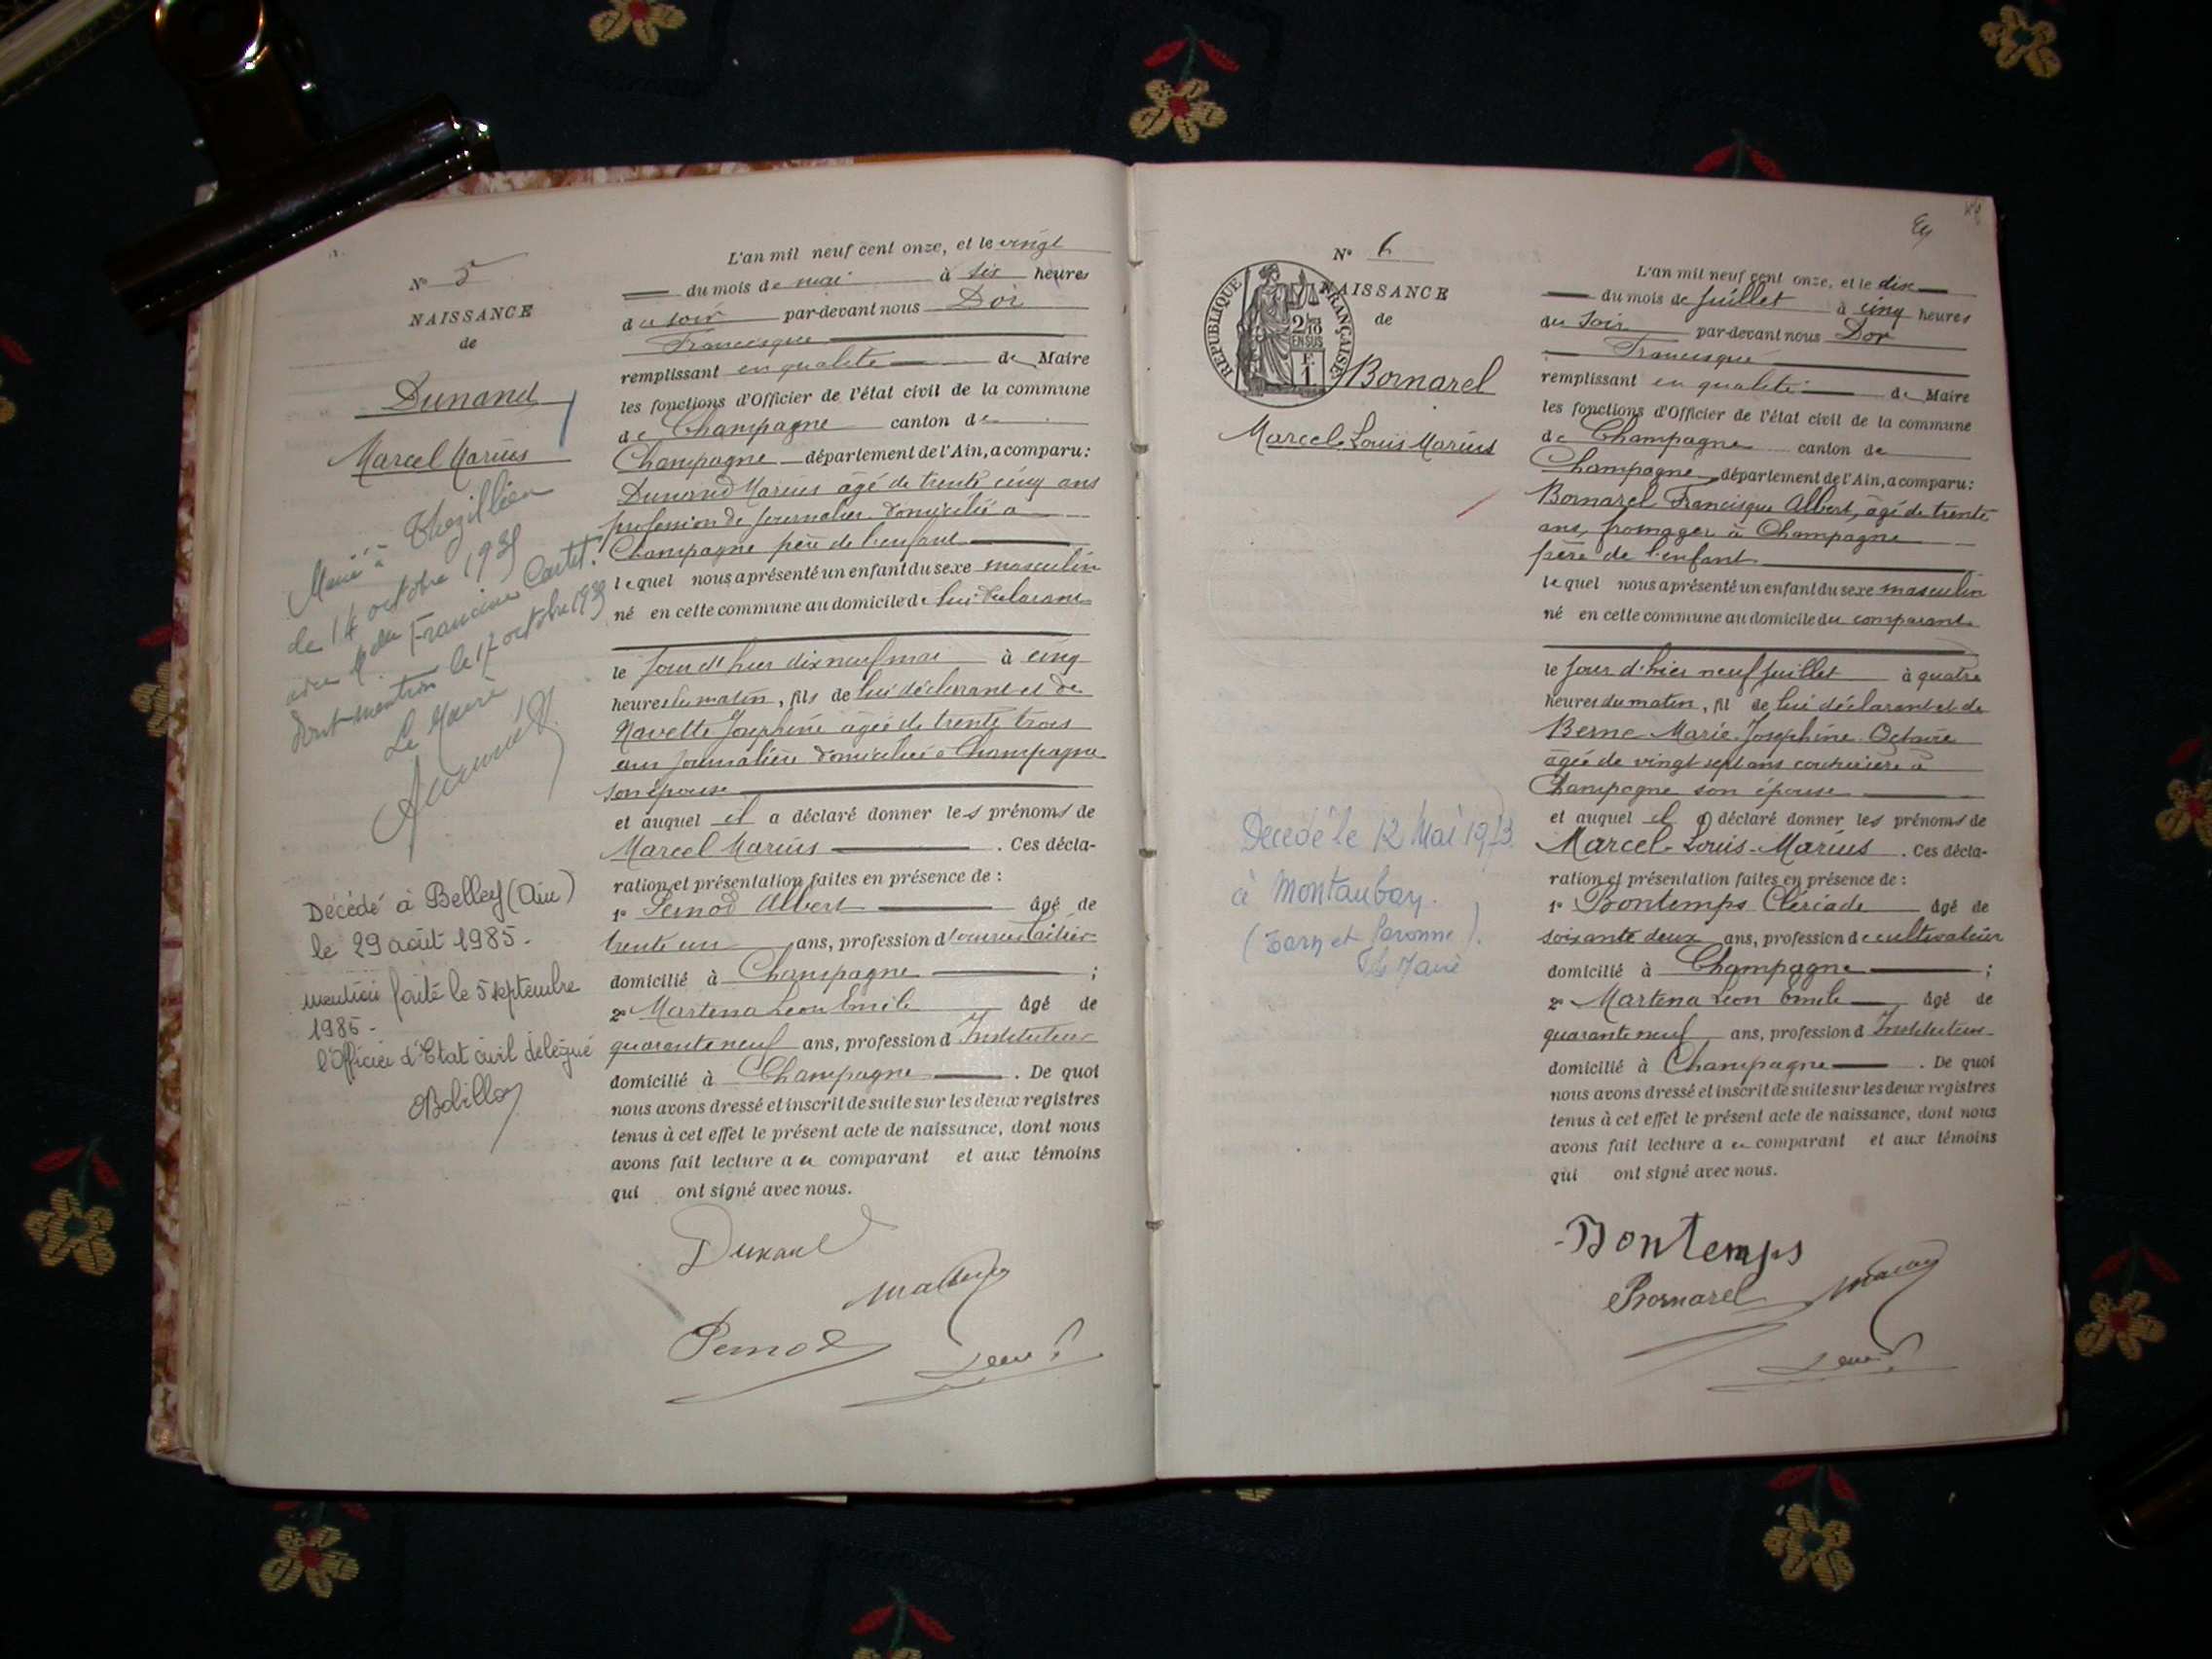 N° 5
NAISSANCE
de
Dunand
Marcel Marius
Marié à Thezillieu
le 14 octobre 1935
avec Francine Cartet.
Dont mention le 17 octobre 1935
Le Maire
Décédé à Belley (Ain)
le 29 août 1985.
mention faite le 5 septembre
1985.
l'Officier d'Etat civil délégué
L'an mil neuf cent onze, et le vingt
du mois de mai à six heures
du soir par-devant nous Dor
Francisque
remplissant en qualité de Maire
les fonctions d'Officier de l'état civil de la commune
de Champagne canton de
Champagne département de l'Ain, a comparu:
Dunand Marius âgé de trente cinq ans
profession de journalier domicilié à
Champagne père de l'enfant
lequel nous a présenté un enfant du sexe masculin
né en cette commune au domicile de lui déclarant
le jour d'hier dix neuf mai à cinq
heures du matin, fils de lui déclarant et de
Navette Joséphine âgée de trente trois
ans journalière domiciliée à Champagne
son épouse
et auquel il a déclaré donner les prénoms de
Marcel Marius . Ces décla-
ration et présentation faites en présence de :
1° Pernod Albert âgé de
trente un ans, profession d
domicilié à Champagne ;
2° Martena Léon Emile âgé de
quarante neuf ans, profession d Instituteur
domicilié à Champagne . De quoi
nous avons dressé et inscrit de suite sur les deux registres
tenus à cet effet le présent acte de naissance, dont nous
avons fait lecture au comparant et aux témoins
qui ont signé avec nous.
Dunand
Pernod
N° 6
NAISSANCE
de
REPUBLIQUE FRANÇAISE
2/10
EN SUS
F.
1.
Bornarel
Marcel Louis Marius
Décédé le 12 Mai 1973
à Montauban.
(Tarn et Garonne).
Le Maire
L'an mil neuf cent onze, et le dix
du mois de Juillet à cinq heures
du soir par-devant nous Dor
Francisque
remplissant en qualité de Maire
les fonctions d'Officier de l'état civil de la commune
de Champagne canton de
Champagne département de l'Ain, a comparu:
Bornarel Francisque Albert, âgé de trente
ans, fromager à Champagne
père de l'enfant
lequel nous a présenté un enfant du sexe masculin
né en cette commune au domicile du comparant
le jour d'hier neuf juillet à quatre
heures du matin, fil de lui déclarant et de
Berne Marie Joséphine Octavie
âgée de vingt sept ans couturière à
Champagne son épouse
et auquel il a déclaré donner les prénoms de
Marcel-Louis-Marius . Ces décla-
ration et présentation faites en présence de :
1° Bontemps Clériade âgé de
soixante deux ans, profession de cultivateur
domicilié à Champagne ;
2° Martena Léon Emile âgé de
quarante neuf ans, profession d Instituteur
domicilié à Champagne . De quoi
nous avons dressé et inscrit de suite sur les deux registres
tenus à cet effet le présent acte de naissance, dont nous
avons fait lecture au comparant et aux témoins
qui ont signé avec nous.
Bontemps
Bornarel